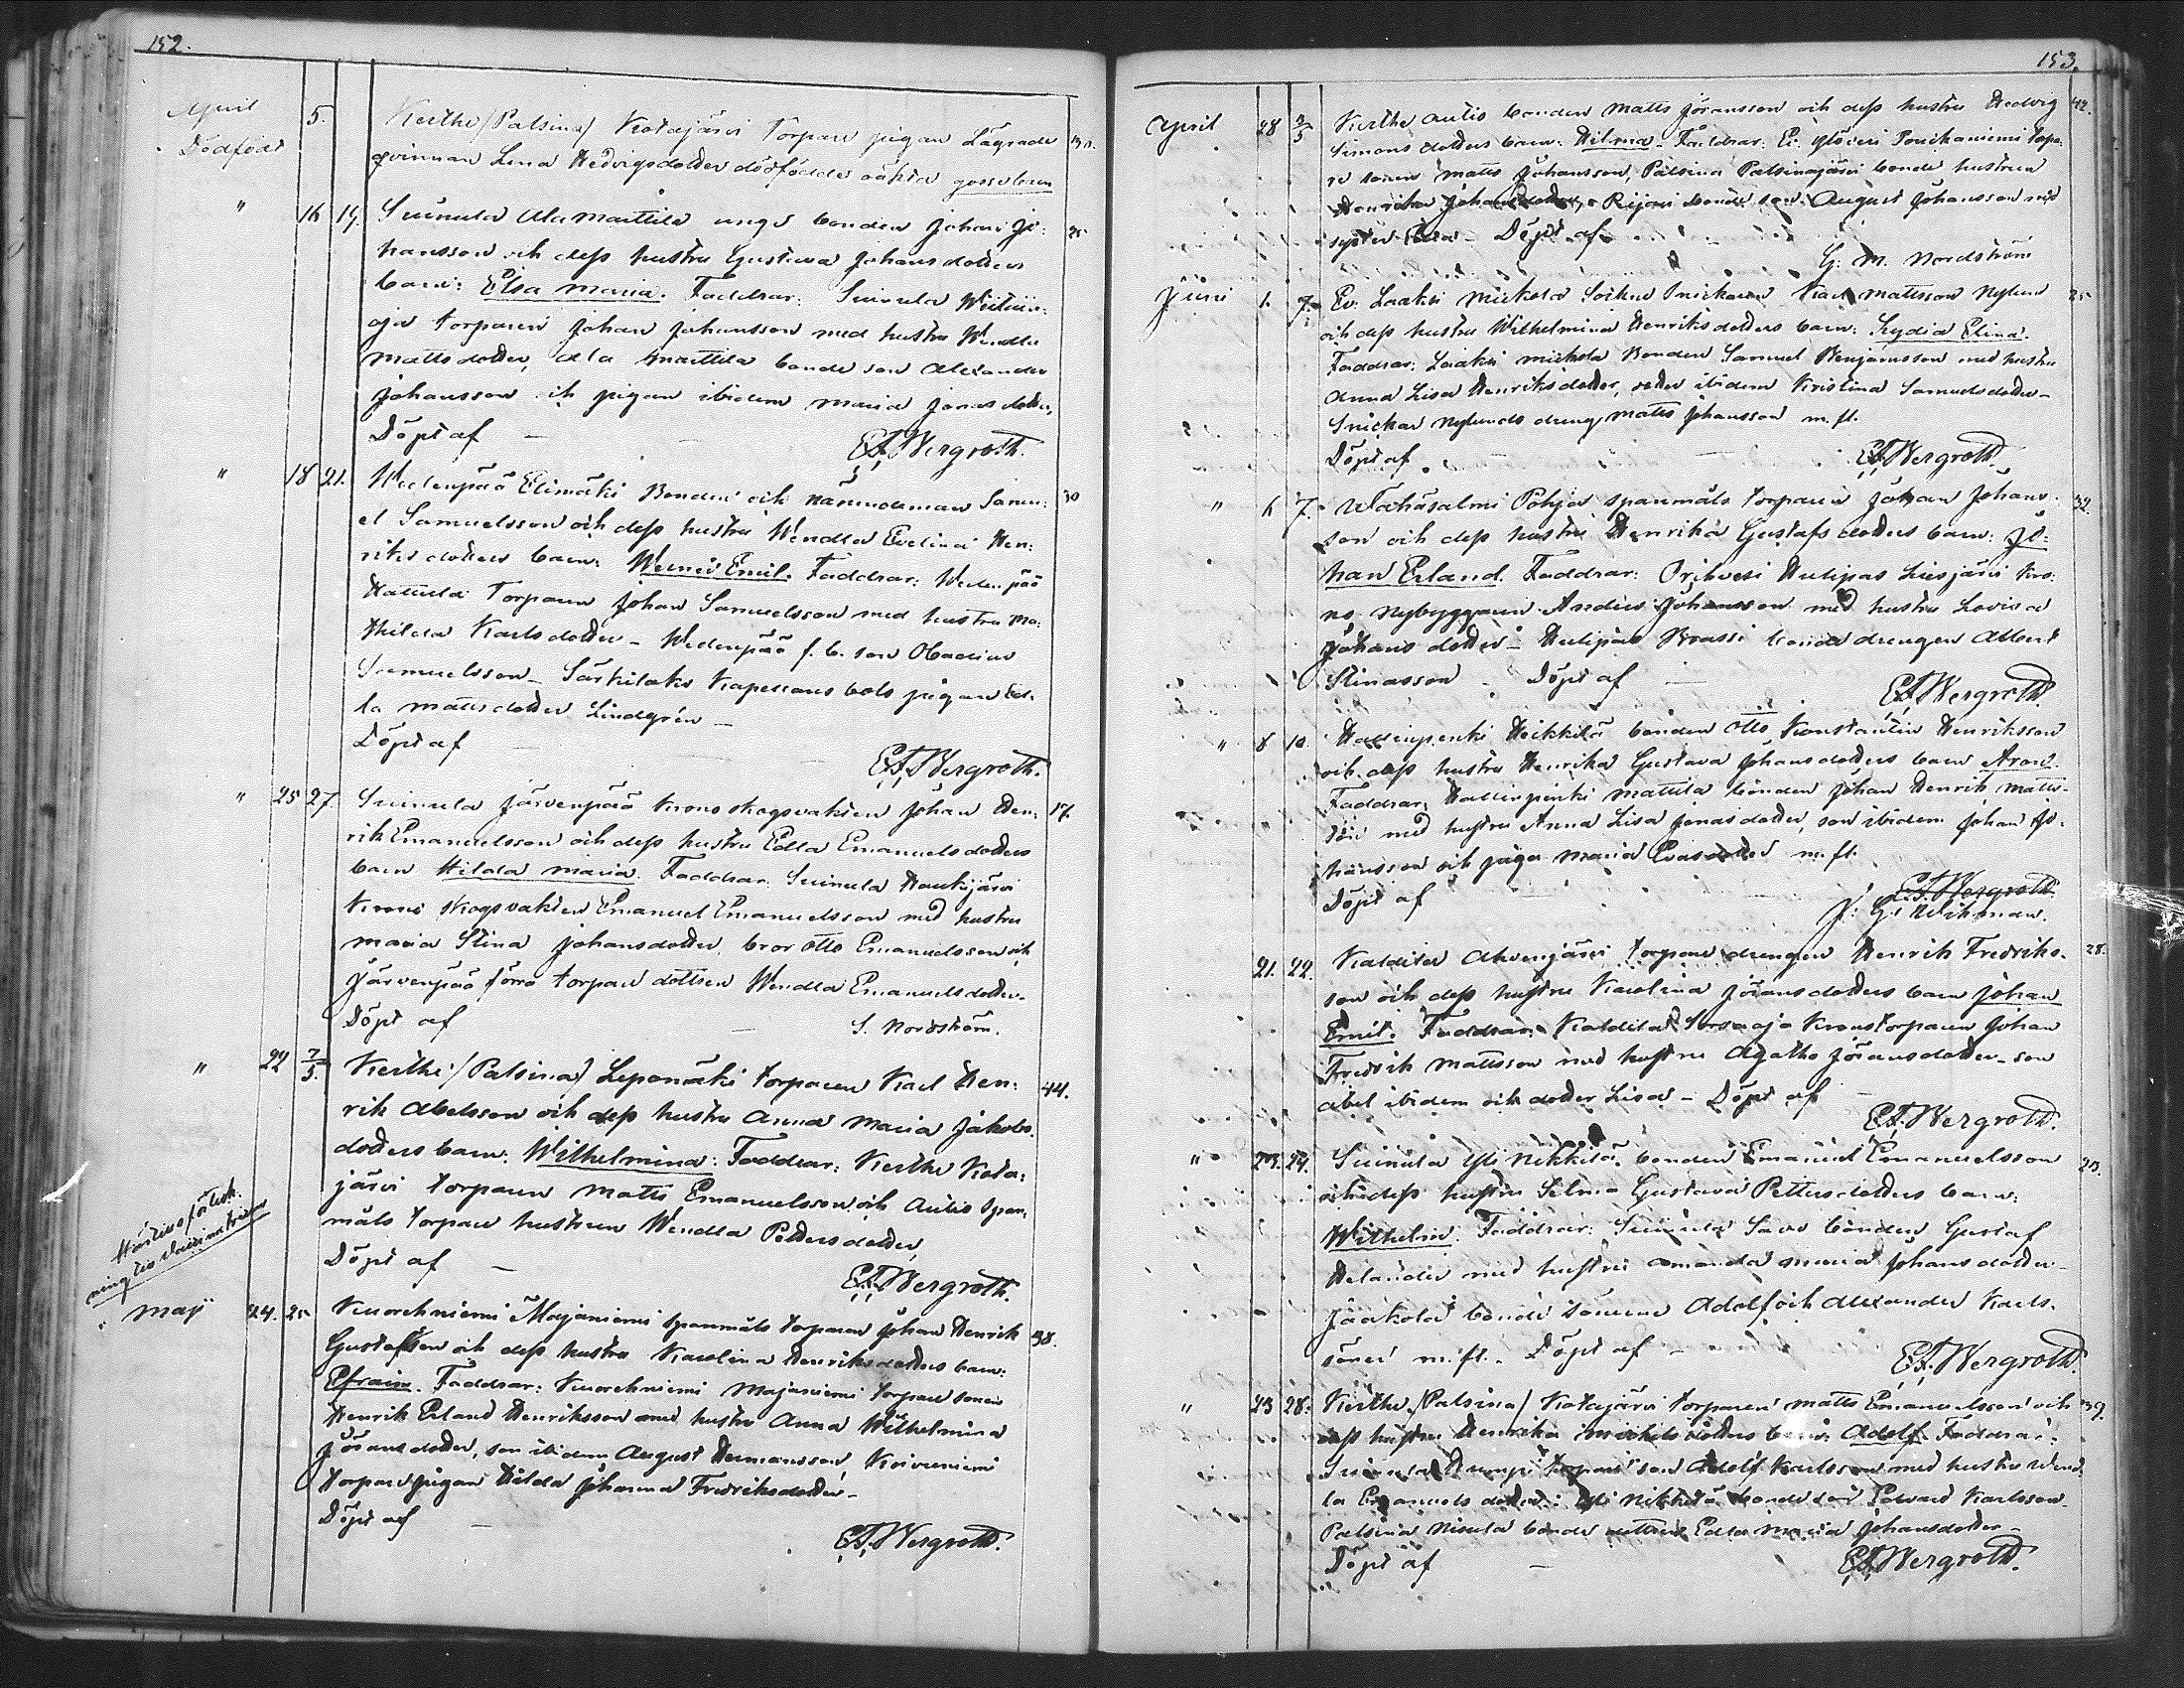 152.
April 5. Kerthe /Palsina/ Kotajärvi Torpare pigan Lägrade 30.
Dödfödt qvinnan Lena Hedvigsdotter dödfödde oäkta gossebarn
" 16 19. Suinula Ala Marttila unge bonden Johan Jo: 25
hansson och dess hustru Gustava Johansdotters
barn: Elsa Maria. Faddrar: Suinula
oja torparen Johan Johansson med hustru Wendla
Mattsdotter, Ala Marttila bonde son Alexander
Johansson och pigan ibidem Maria Jonasdotter,
Döpt af —
E. F. Wergroth.
" 18 21. Wedenpää Elimäki Bonden och nämndeman Samu: 30
el Samuelsson och dess hustru Wendla Evelina Hen:
riksdotters barn: Werner Emil. Faddrar: Wedenpää
Hattula Torparen Johan Samuelsson med hustru Ma:
thilda Karlsdotter – Wedenpää f. b. son Obadias
Samuelsson – Särkilaks Kapellans bols pigan Ed:
la Mattsdotter Lindgrén —
Döpt af —
E. F. Wergroth.
" 25 27. Suinula Järvenpää Kronoskogsvakten Johan Hen: 17.
rik Emanuelsson och dess hustru Edla Emanuelsdotters
barn Hilda Maria. Faddrar: Suinula Haukijärvi
Krono skogsvakten Emanuel Emanuelsson med hustru
Maria Stina Johansdotter, bror Otto Emanuelsson och
Järvenpää förra torpare dottren Wendla Emanuelsdotter.
Döpt af — S. Nordström.
" 22 7/5. Kerthe /Palsina/ Leponäki torparen Karl Hen: 44.
rik Abelsson och dess hustru Anna Maria Jakobs
dotters barn: Wilhelmina: Faddrar: Kerthe Kota:
järvi torparen Matts Emanuelsson och Autio span:
måls torpare hustrun Wendla Pettersdotter
Döpt af —
E. F. Wergroth.
Maji 24. 25 Kuorehniemi Majaniemi spanmåls torparen Johan Henrik 38.
Gustafsson och dess hustru Karolina Henriksdotters barn:
Efraim. Faddrar: Kuorehniemi Majaniemi torpare sonen
Henrik Erland Henriksson med hustru Anna Wilhelmina
Jöransdotter, son ibidem August Hermansson, Koivuniemi
torpare pigan Hilda Johanna Fredriksdotter –
Döpt af —
E. F. Wergroth.
153.
April 28 3/5 Kerthe Autio bonden Matts Jöransson och dess hustru Hedvig 42.
Simonsdotters barn: Hilma. Faddrar: Ev. Ylöjärvi torpa:
re sonen Matts Johansson, Palsina Palsinajärvi bonde hustrun
Henrika Johansdotter, Rijari bonde son August Johansson med
syster – Döpt af
G. M. Nordström
Juni 1. 7. Ev. Laaksi Mickola Socken Snickaren Karl Mattsson Nylund 25
och dess hustru Wilhelmina Henriksdotters barn: Lydia Elina.
Faddrar: Laaksi Mickola Bonden Samuel Benjamsson med hustru
Anna Lisa Henriksdotter, ibidem Kristina Samuelsdotter –
Snickar Nylunds dreng Matts Johansson m. fl.
Döpt af
E. F. Wergroth.
" 6 7. Wähäsalmi Pohja spanmåls torparen Johan Johans 32.
son och dess hustru Henrika Gustafsdotters barn: Jo:
han Erland. Faddrar: Orihvesi Hulipas Liesjärvi Kro:
no Nybyggaren Anders Johansson med hustru Lovisa
Johansdotter – Hulipas Brassi bonde drengen Albert
Stinasson – Döpt af —
E. F. Wergroth.
" 8 10. Hallinpenki Heikkilä bonden Otto Konstantin Henriksson
och dess hustru Henrika Gustava Johansdotters barn Aron.
Faddrar: Hallinpenki Mattila bonden Johan Henrik Matts-
son med hustru Anna Lisa Jonasdotter, son ibidem Johan Jo-
hansson och piga Maria Evasdotter m. fl.
Döpt af
E. F. Wergroth.
J: G: Wikman.
21. 22. Kaldila Ahvenjärvi torpare drengen Henrik Fredriks- 28.
son och dess hustru Karolina Jöransdotters barn Johan
Emil. Faddrar: Kaldila Sorsaoja Kronotorparen Johan
Fredrik Mattsson med hustru Agatha Jöransdotter – son
Abel ibidem och dotter Lisa – Döpt af —
E. F. Wergroth.
" 23. 24. Suinula Yli Nikkilä bonden Emanuel Emanuelsson 23.
och dess hustru Selma Gustava Pettersdotters barn:
Wilhelm. Faddrar: Suinula Savo bonden Gustaf
Helander med hustru Amanda Maria Johansdotter –
Jaakola bonde sönerna Adolf och Alexander Karls-
söner m. fl. – Döpt af –
E. F. Wergroth.
" 23 28. Kerthe /Palsina/ Kotajärvi torparen Matts Emanuelsson och 39.
dess hustru Henrika Mickelsdotters barn: Adolf Faddrar:
Suinula torpare son Adolf Karlsson med hustru Wend
la Emanuelsdotter: Yli Nikkilä bonde son Edvard Karlsson
Palsina Nisula bonde dottren Edla Maria Johansdotter –
Döpt af —
E. F. Wergroth.